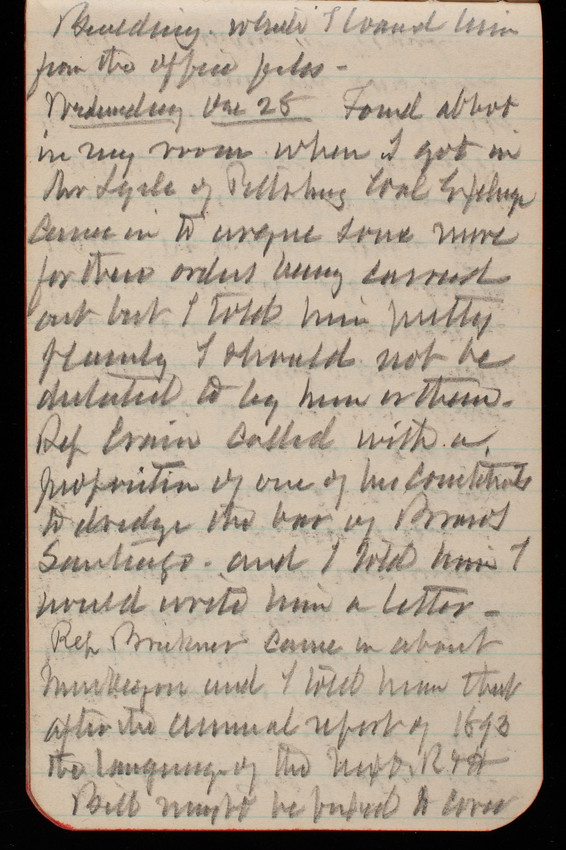 Building. while I found him
from the office files -
Wednesday Dec 28 Found Abbot
in my room when I got in
Mr Lysle of Pittsburg Coal Exchge
came in to argue some more
for their orders being carried
out but I told him pretty
plainly I should not be
dictated to by him or them.
Rep Crain called with a
proposition of one of his constituents
to dredge the bar of Brazos
Santiago. and I told him I
would write him a letter -
Rep Brickner came in about
Muskegon and I told him that
after the annual report of 1893
the language of the next R & H
Bill might be fixed to cover